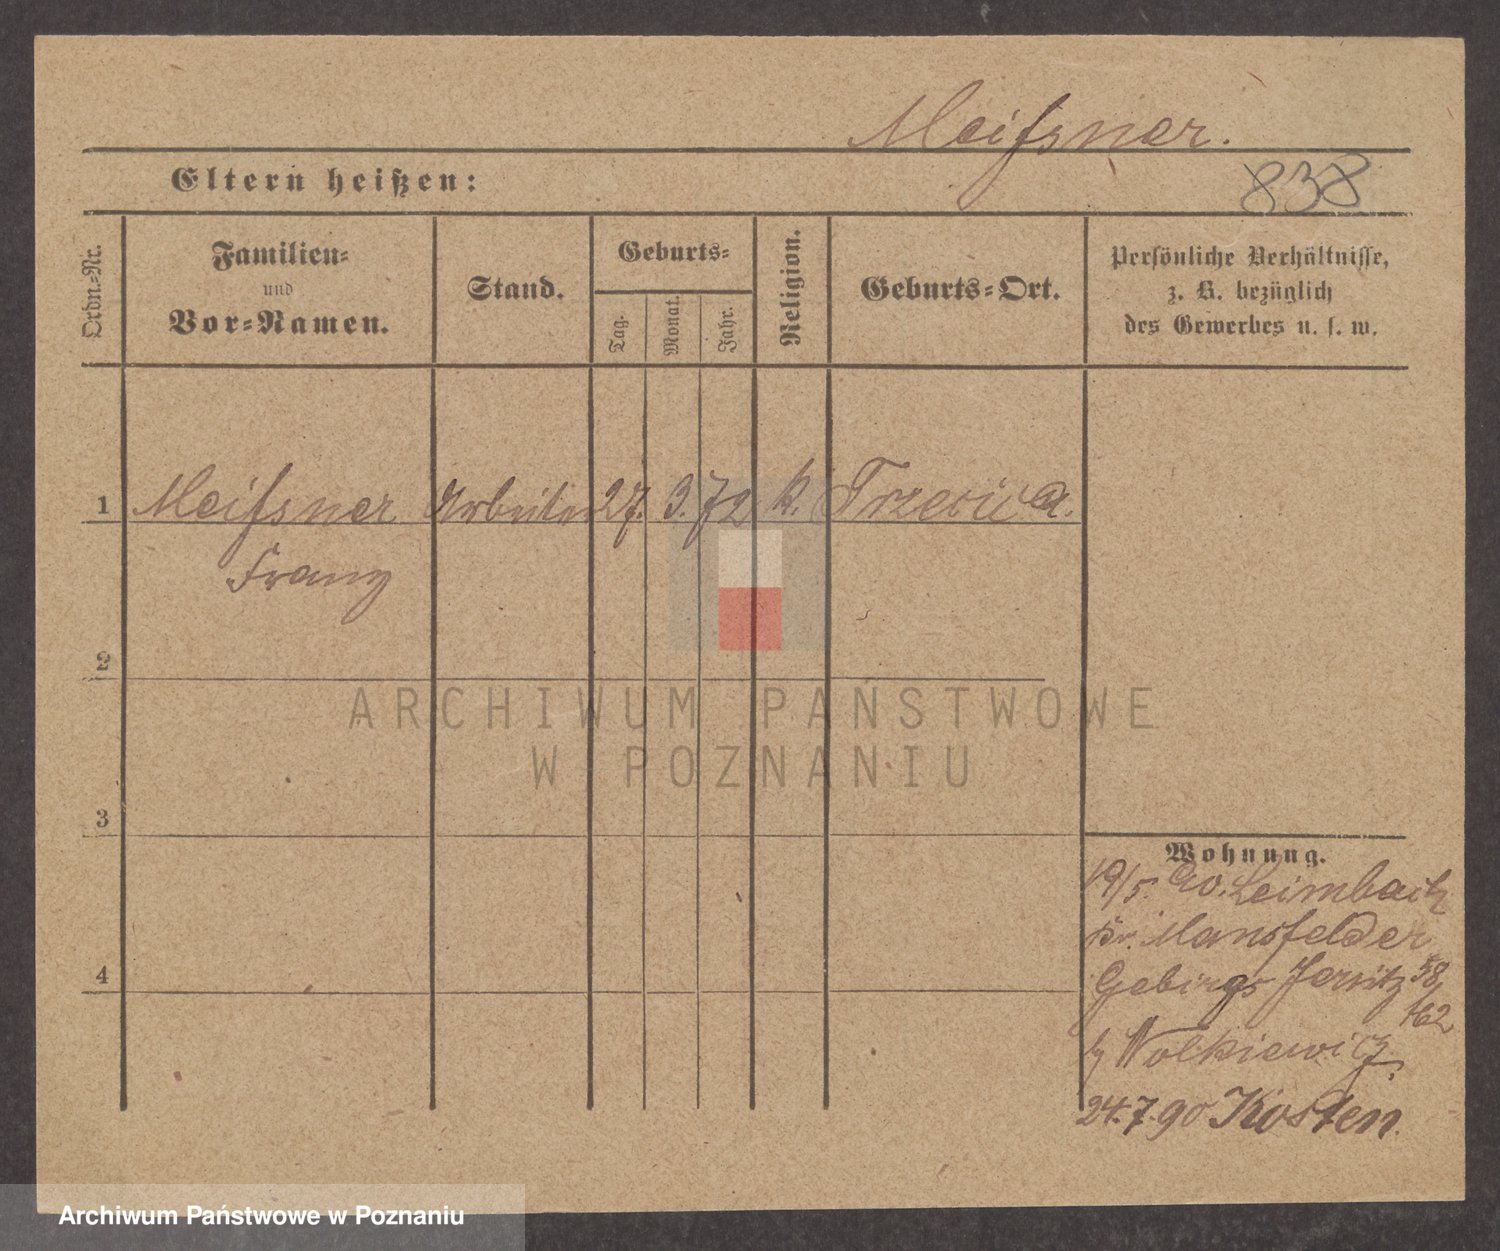 Meißner.
838
Eltern heißen:
Ordn.-Nr.
Familien-
und
Vor-Namen.
Stand.
Geburts-
Tag.
Monat.
Jahr.
Religion.
Geburts-Ort.
Persönliche Verhältnisse,
z. B. bezüglich
des Gewerbes u. s. w.
1 Meißner Arbeiter 27. 3. 72 k.
Franz
2
3
4
Wohnung.
19/5. 90. Leimbach
Kr. Mansfelder
Gebirgs Jersitz 58
162
b/ Wolkiewicz
24.7.90 Kosten.
ARCHIWUM PAŃSTWOWE
W POZNANIU
Archiwum Państwowe w Poznaniu